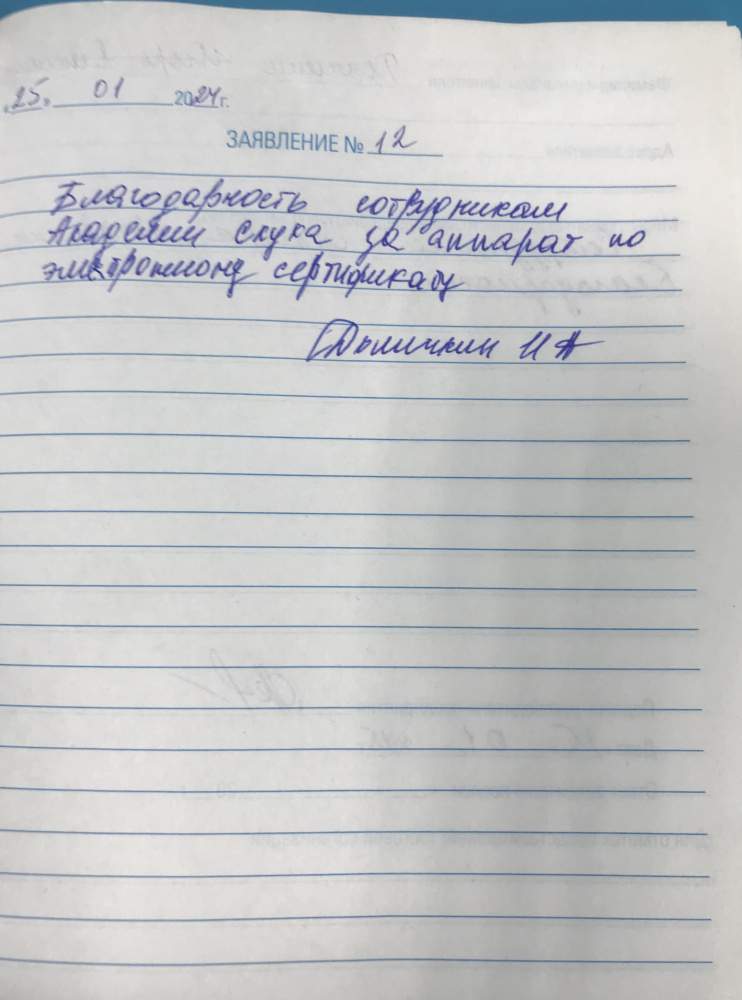 25. 01 2024г.
ЗАЯВЛЕНИЕ № 12
Благодарность сотрудникам
Академии слуха за аппарат по
электронному сертификату
Доличкин И А